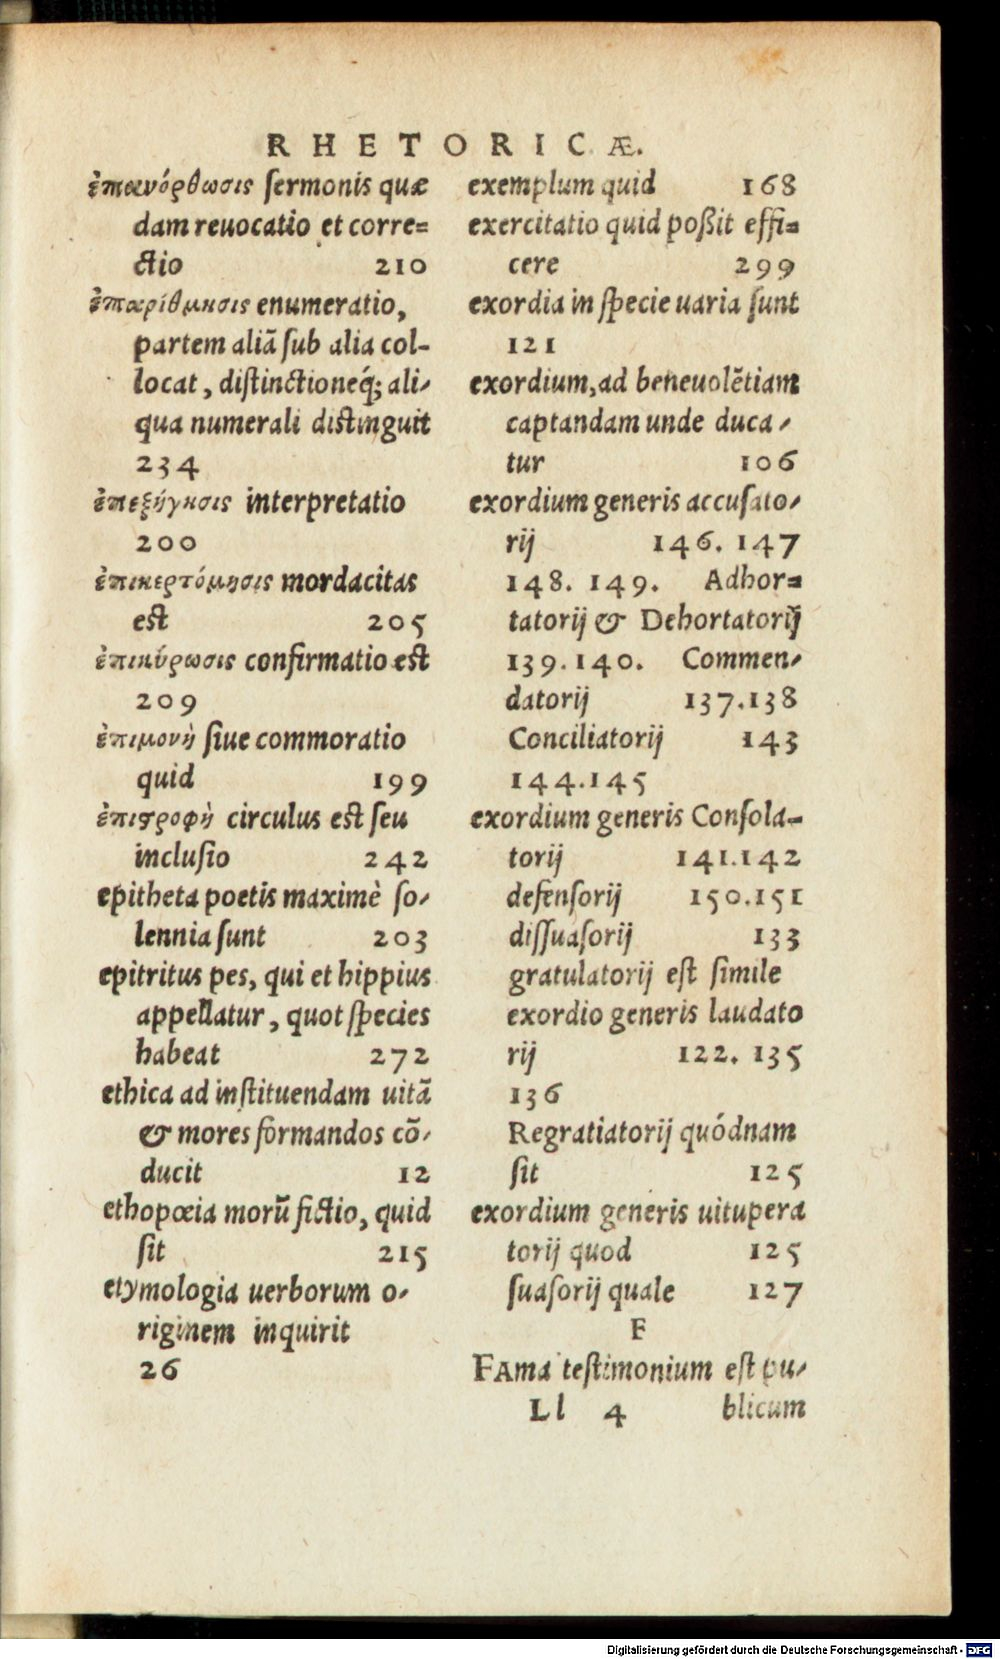 RHETORICÆ.
ἐπανόρθωσις ſermonis quæ
dam reuocatio et corre=
ctio 210
ἐπαρίθμησις enumeratio,
partem aliā ſub alia col-
locat, diſtinctioneq́; ali-
qua numerali diſtinguit
234
ἐπεξήγησις interpretatio
200
ἐπικερτόμησις mordacitas
eſt 205
ἐπικύρωσις confirmatio eſt
209
ἐπιμονὴ ſiue commoratio
quid 199
ἐπιϛροφὴ circulus eſt ſeu
incluſio 242
epitheta poetis maximè ſo-
lennia ſunt 203
epitritus pes, qui et hippius
appellatur, quot ſpecies
habeat 272
ethica ad inſtituendam uitā
& mores formandos cō-
ducit 12
ethopœia morū fictio, quid
ſit 215
etymologia uerborum o-
riginem inquirit
26
exemplum quid 168
exercitatio quid poßit effi=
cere 299
exordia in ſpecie uaria ſunt
121
exordium, ad beneuolētiam
captandam unde duca-
tur 106
exordium generis accuſato-
rij 146. 147
148. 149. Adhor=
tatorij & Dehortatorij
139. 140. Commen-
datorij 137.138
Conciliatorij 143
144.145
exordium generis Conſola-
torij 141.142
defenſorij 150.151
diſſuaſorij 133
gratulatorij eſt ſimile
exordio generis laudato
rij 122. 135
136
Regratiatorij quódnam
ſit 125
exordium generis uitupera
torij quod 125
ſuaſorij quale 127
F
FAma teſtimonium eſt pu-
Ll 4 blicum
Digitalisierung gefördert durch die Deutsche Forschungsgemeinschaft - DFG